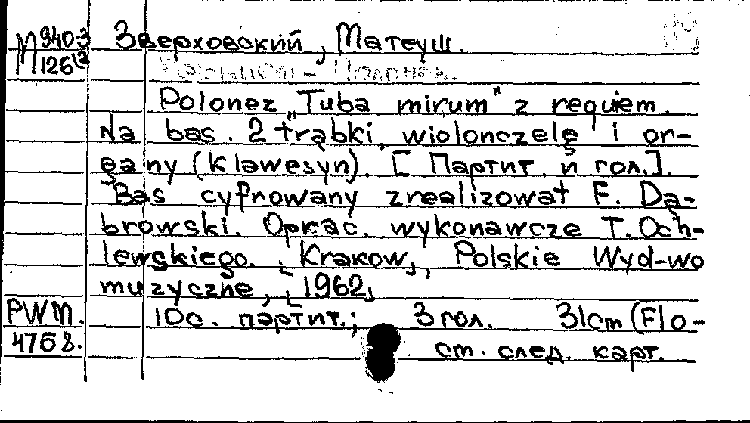 М 940-3
126(2
Зверховский, Матеуш.
Polonez „Tuba mirum" z requiem.
Na bas. 2 trąbki, wiolonczelę i or-
gany (Klawesyn). [Партит. и гол.].
Bas cyfrowany zrealizował F. Dą-
browski. Oprac. wykonawcze T. Och-
lewskiego. [Krakow], Polskie Wyd-wo
muzyczne, [1962]
PWM. 10с. партит.; 3 гол. 31cm (Flo-
4768. см. след. карт.